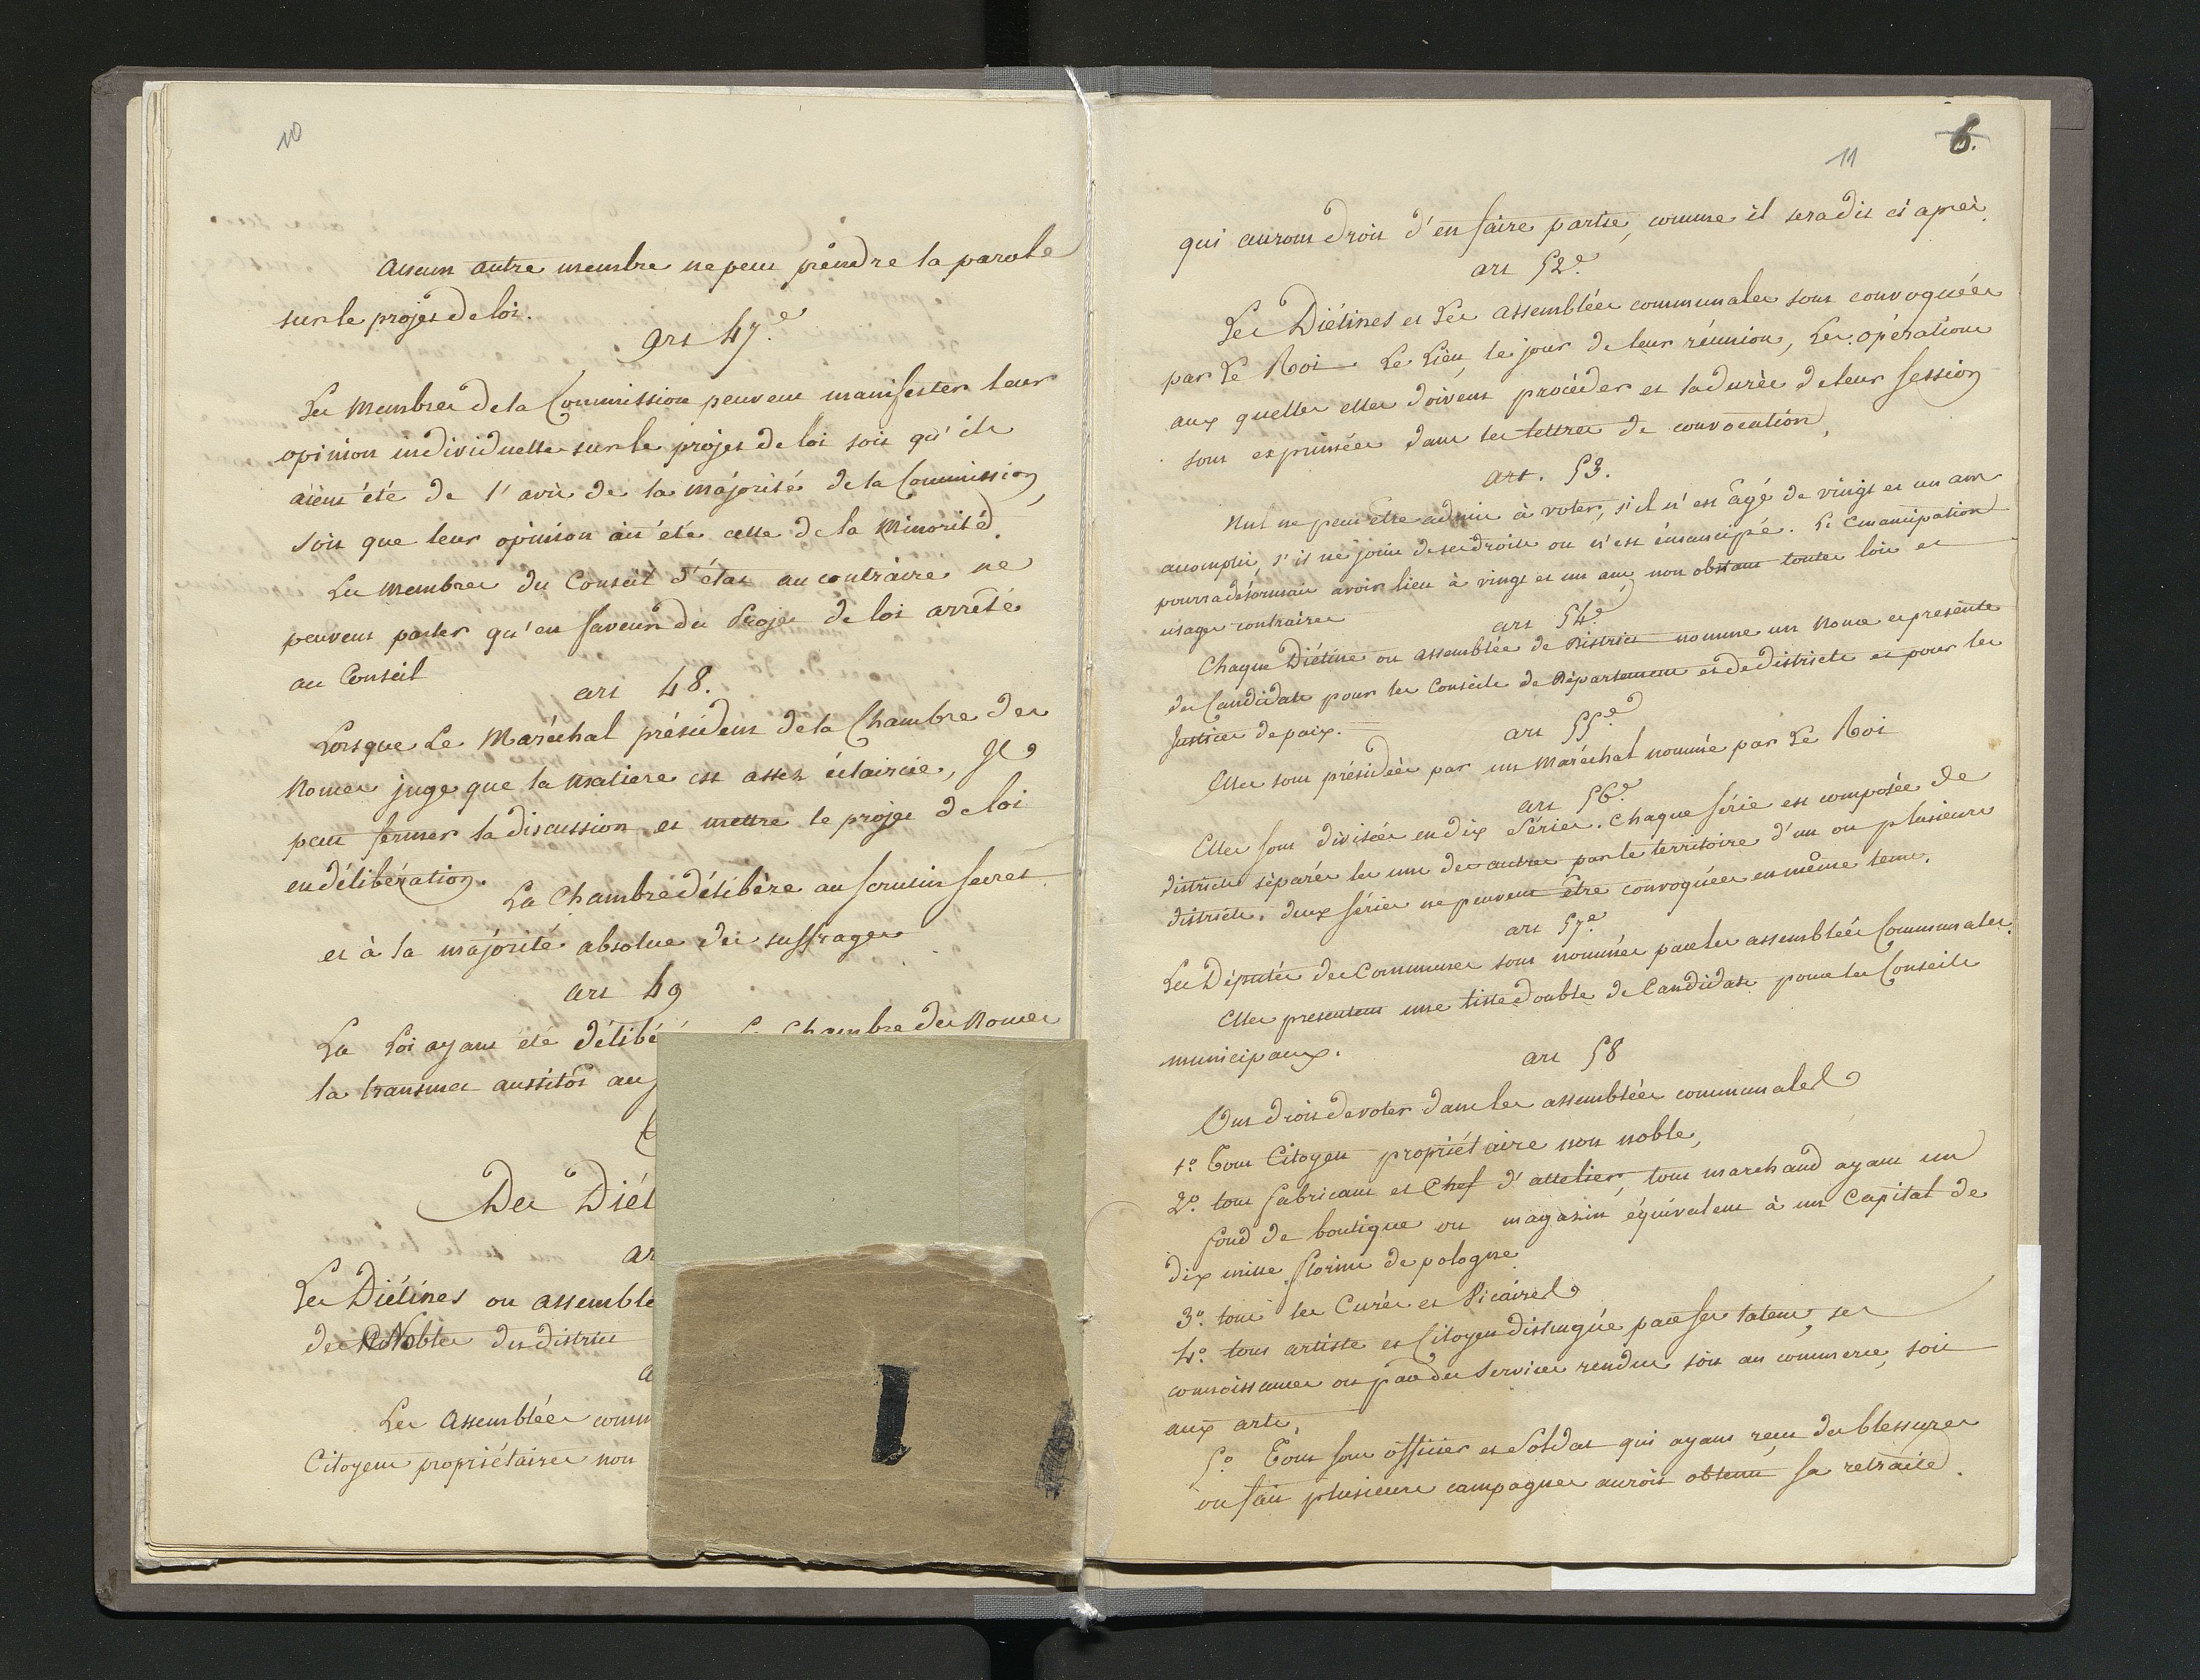 10
Aucun autre membre ne peut prendre la parole
sur le projet de loi.
Art 47.e
Les Membres de la Commission peuvent manifester leur
opinion individuelle sur le projet de loi soit qu'ils
aient été de l'avis de la májorité de la Commission,
soit que leur opinion ait été celle de la Minorité.
Les Membres du Conseil d'état au contraire ne
peuvent parler qu'en faveur du Projet de loi arrêté
au Conseil
art 48.
Lorsque Le Maréchal président de la Chambre des
Nonces juge que la matiere est assez éclaircie, Il
peut fermer la discussion et mettre le projet de loi
en délibération.
La Chambre délibère au scrutin secret
et à la majorité absolue des suffrages
art 49
La Loi ayant été délibé Chambre des Nonces
la transmet aussitôt au
Des Diét
ar
Les Diétines ou assemblé
des Nobles du district
a
Les Assemblées comm
Citoyens propriétaires non
I
11
6.
qui auront droit d'en faire partie, comme il sera dit ci après.
art 52.e
Les Diétines et les assemblées communales sont convoquées
par Le Roi Le Lieu, le jour de leur réunion, Les opérations
aux quelles elles doivent procéder et la durée de leur session
sont exprimées dans les lettres de convocation,
Art. 53.
Nul ne peut être admis à voter, s'il n'est âgé de vingt et un ans
accomplis, s'il ne jouit de ses droits ou n'est émancipé. L'Emancipation
pourra désormais avoir lieu à vingt et un ans non obstant toutes lois et
usages contraires
art 54.e
Chaque Diétine ou assemblée de District nomme un Nonce et présente
des Candidats pour les Conseils de Département et de districts et pour les
Justices de paix.
art 55.e
Elles sont présidées par un Maréchal nommé par Le Roi
art 56.e
Elles sont divisées en dix Séries. Chaque série est composée de
districts séparés les uns des autres par le territoire d'un ou plusieurs
districts. deux séries ne peuvent être convoquées en même tems.
art 57.e
Les Députés des Communes sont nommés par les assemblées Communales.
Elles présentent une liste double de Candidats pour les Conseils
municipaux.
art 58
Ont droit de voter dans les assemblées communales
1.o Tout Citoyen propriétaire non noble,
2.o tout fabricant et Chef d'attelier, tout marchand ayant un
fond de boutique ou magazin équivalent à un Capital de
dix mille florins de pologne
3.o tous les Curés et Vicaires
4.o tout artiste et Citoyen distingué par ses talens, ses
connoissances ou par des Services rendus soit au commerce, soit
aux arts,
5.o Tout sous officier et Soldat qui ayant reçu des blessures
ou fait plusieurs campagnes auroit obtenu sa retraite.